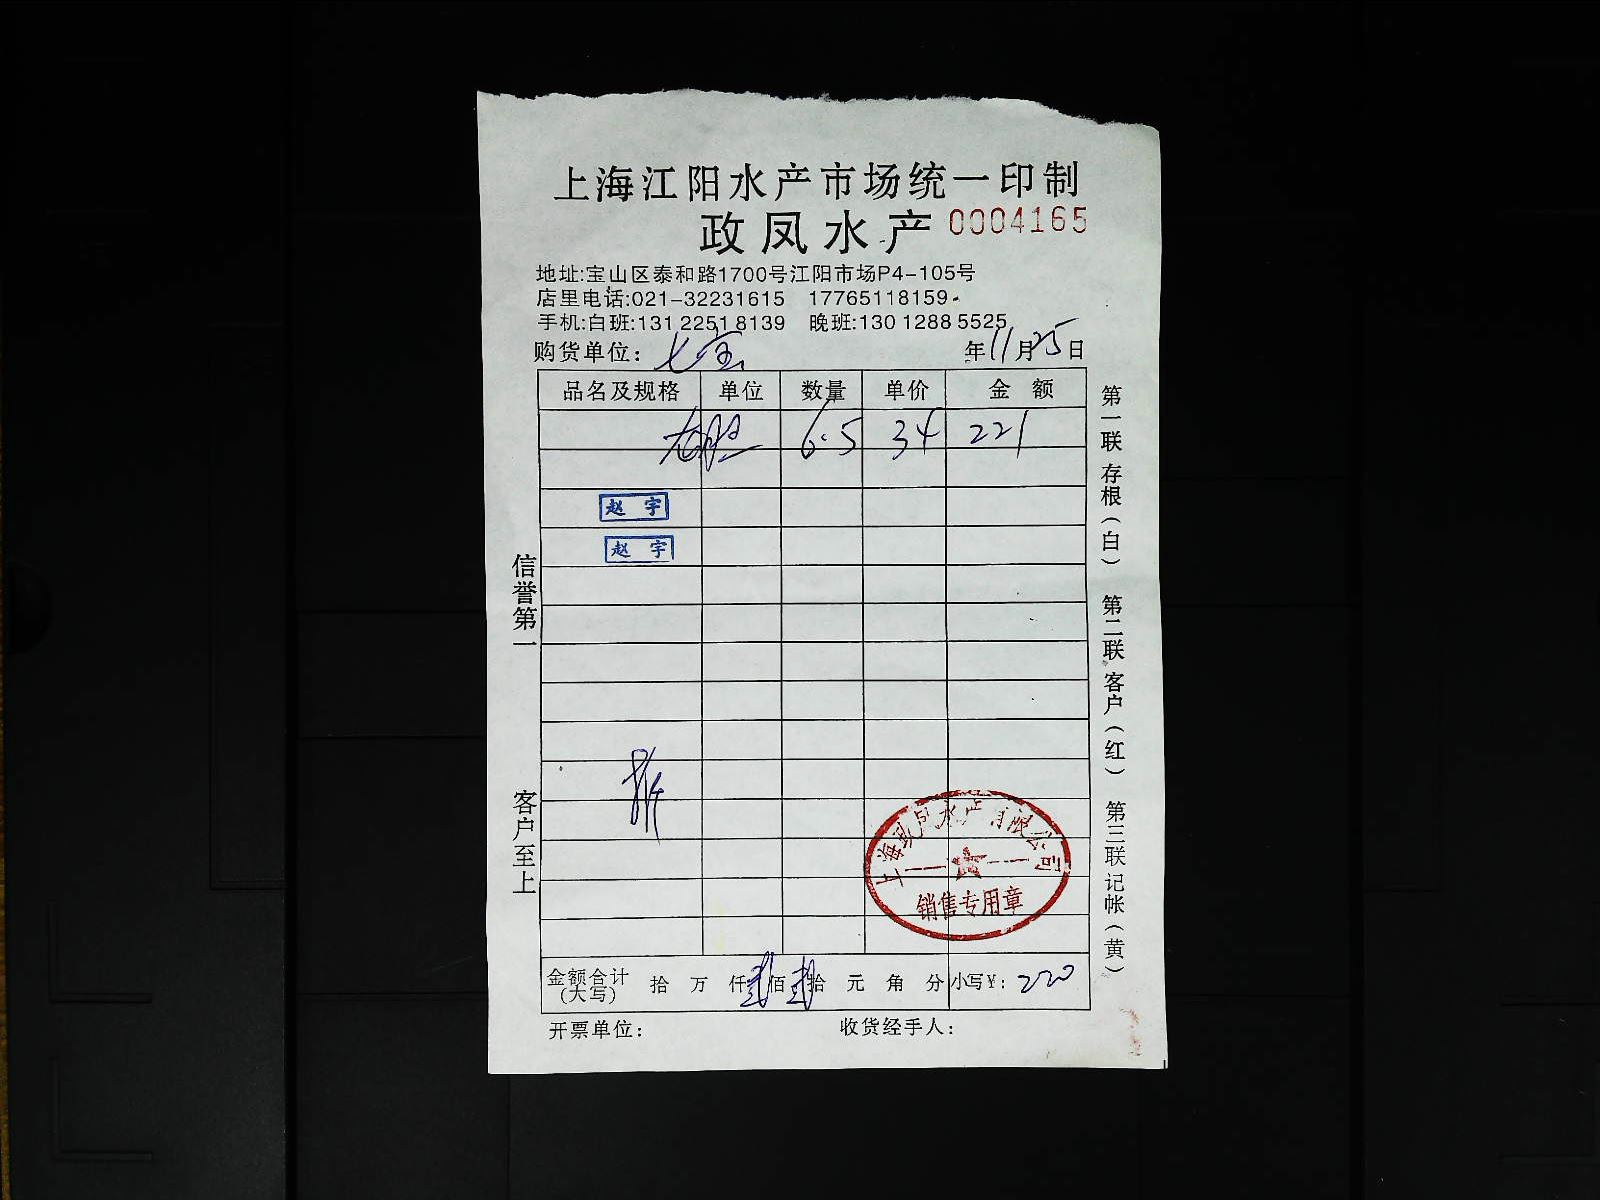 上海江阳水产市场统一印制
政凤水产 0004165
地址:宝山区泰和路1700号江阳市场P4-105号
店里电话:021-32231615 17765118159
手机:白班:131 2251 8139 晚班:130 1288 5525
购货单位: 七宝 年11月25日
品名及规格 单位 数量 单价 金额
6.5 34 221
赵宇
赵宇
信誉第一 客户至上
第一联 存根(白) 第二联 客户(红) 第三联 记帐(黄)
上海政凤水产有限公司
销售专用章
金额合计(大写) 拾 万 仟 贰佰 贰拾 元 角 分 小写¥: 220
开票单位: 收货经手人: